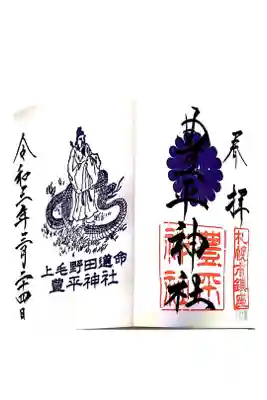 奉拝
札幌市鎮座
豊平神社
豊平神社
上毛野田道命
豊平神社
令和三年二月二十四日